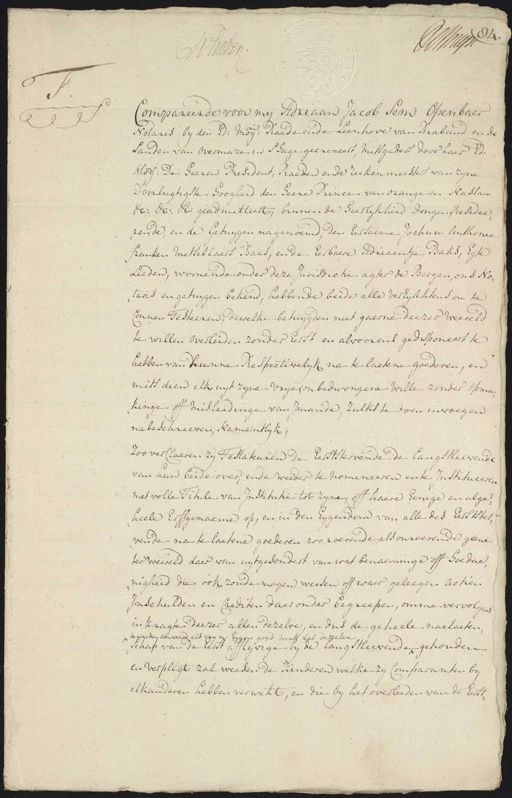 84.
T.
Compareerde voor my Adriaan Jacob Sem Openbaer
Notaris by den Ed: Mog: Raede ende Leenhove van Braband en de
Landen van Overmaeze in S'Hage geadmitteert, mitsgaders door haer Ed
De Heeren President, Raeden ende Reekenmeesters van zyne
Doorlugtigste Hoogheid den Heere Prince van Orange en Nassau
&c. &c. &c. geadmitteert, binnen de Heerlykheid Dongen resideerende,
en de getuygen nagenoemd, den Eersaeme Jochum Anthonie
franken Metselaers Baas, ende Eerbaere Adriaentje Baks, Egte
Lieden, woonende onder deze Jurisdictie agter de Bergen, ons No,,
taris en getuygen bekend, hebbende beide alle verstand en
connen Testeeren, dewelke betuygden niet gaerne deezer Weereld
te willen overleiden zonder eerst en alvoorens gedisponeert te
hebben van hunne Respectivelyk na te laetene goederen, en
mits dien elk uyt zyne vrye onbedwongene wille zonder opma,,
kinge off misleidinge van imande, zulks te doen in voegen
nabeschreeven, Namentlyk;
Zoo verclaeren zy Testateuren de Eerststervende de Langstleevende
van hun beide over, ende weeder te nomineeren en te Institueeren
met volle Titele van Institutie tot zyne off haere Eenige en alge,,
heele Erffgenaeme op, en in den Eygendom van alle des Eerststervende
na te laetene goederen zoo roerende als onroerende geene
ter weereld daer van uytgesondert van wat benaeminge off Goedae,,
nigheid die ook zoude mogen weesen off waer geleegen Actien
Inschulden en Crediten daer onder begreepen, omme vervolgens
in kragte deezer allen dezelve, en dus de geheele naelaeten,,
schap van de eerst afflyvige by de Langstleevende gehouden
en verpligt zal weesen de Kinderen welke zy Comparanten by
elkanderen hebben verwekt, en die by het overleiden van de Eerst,,